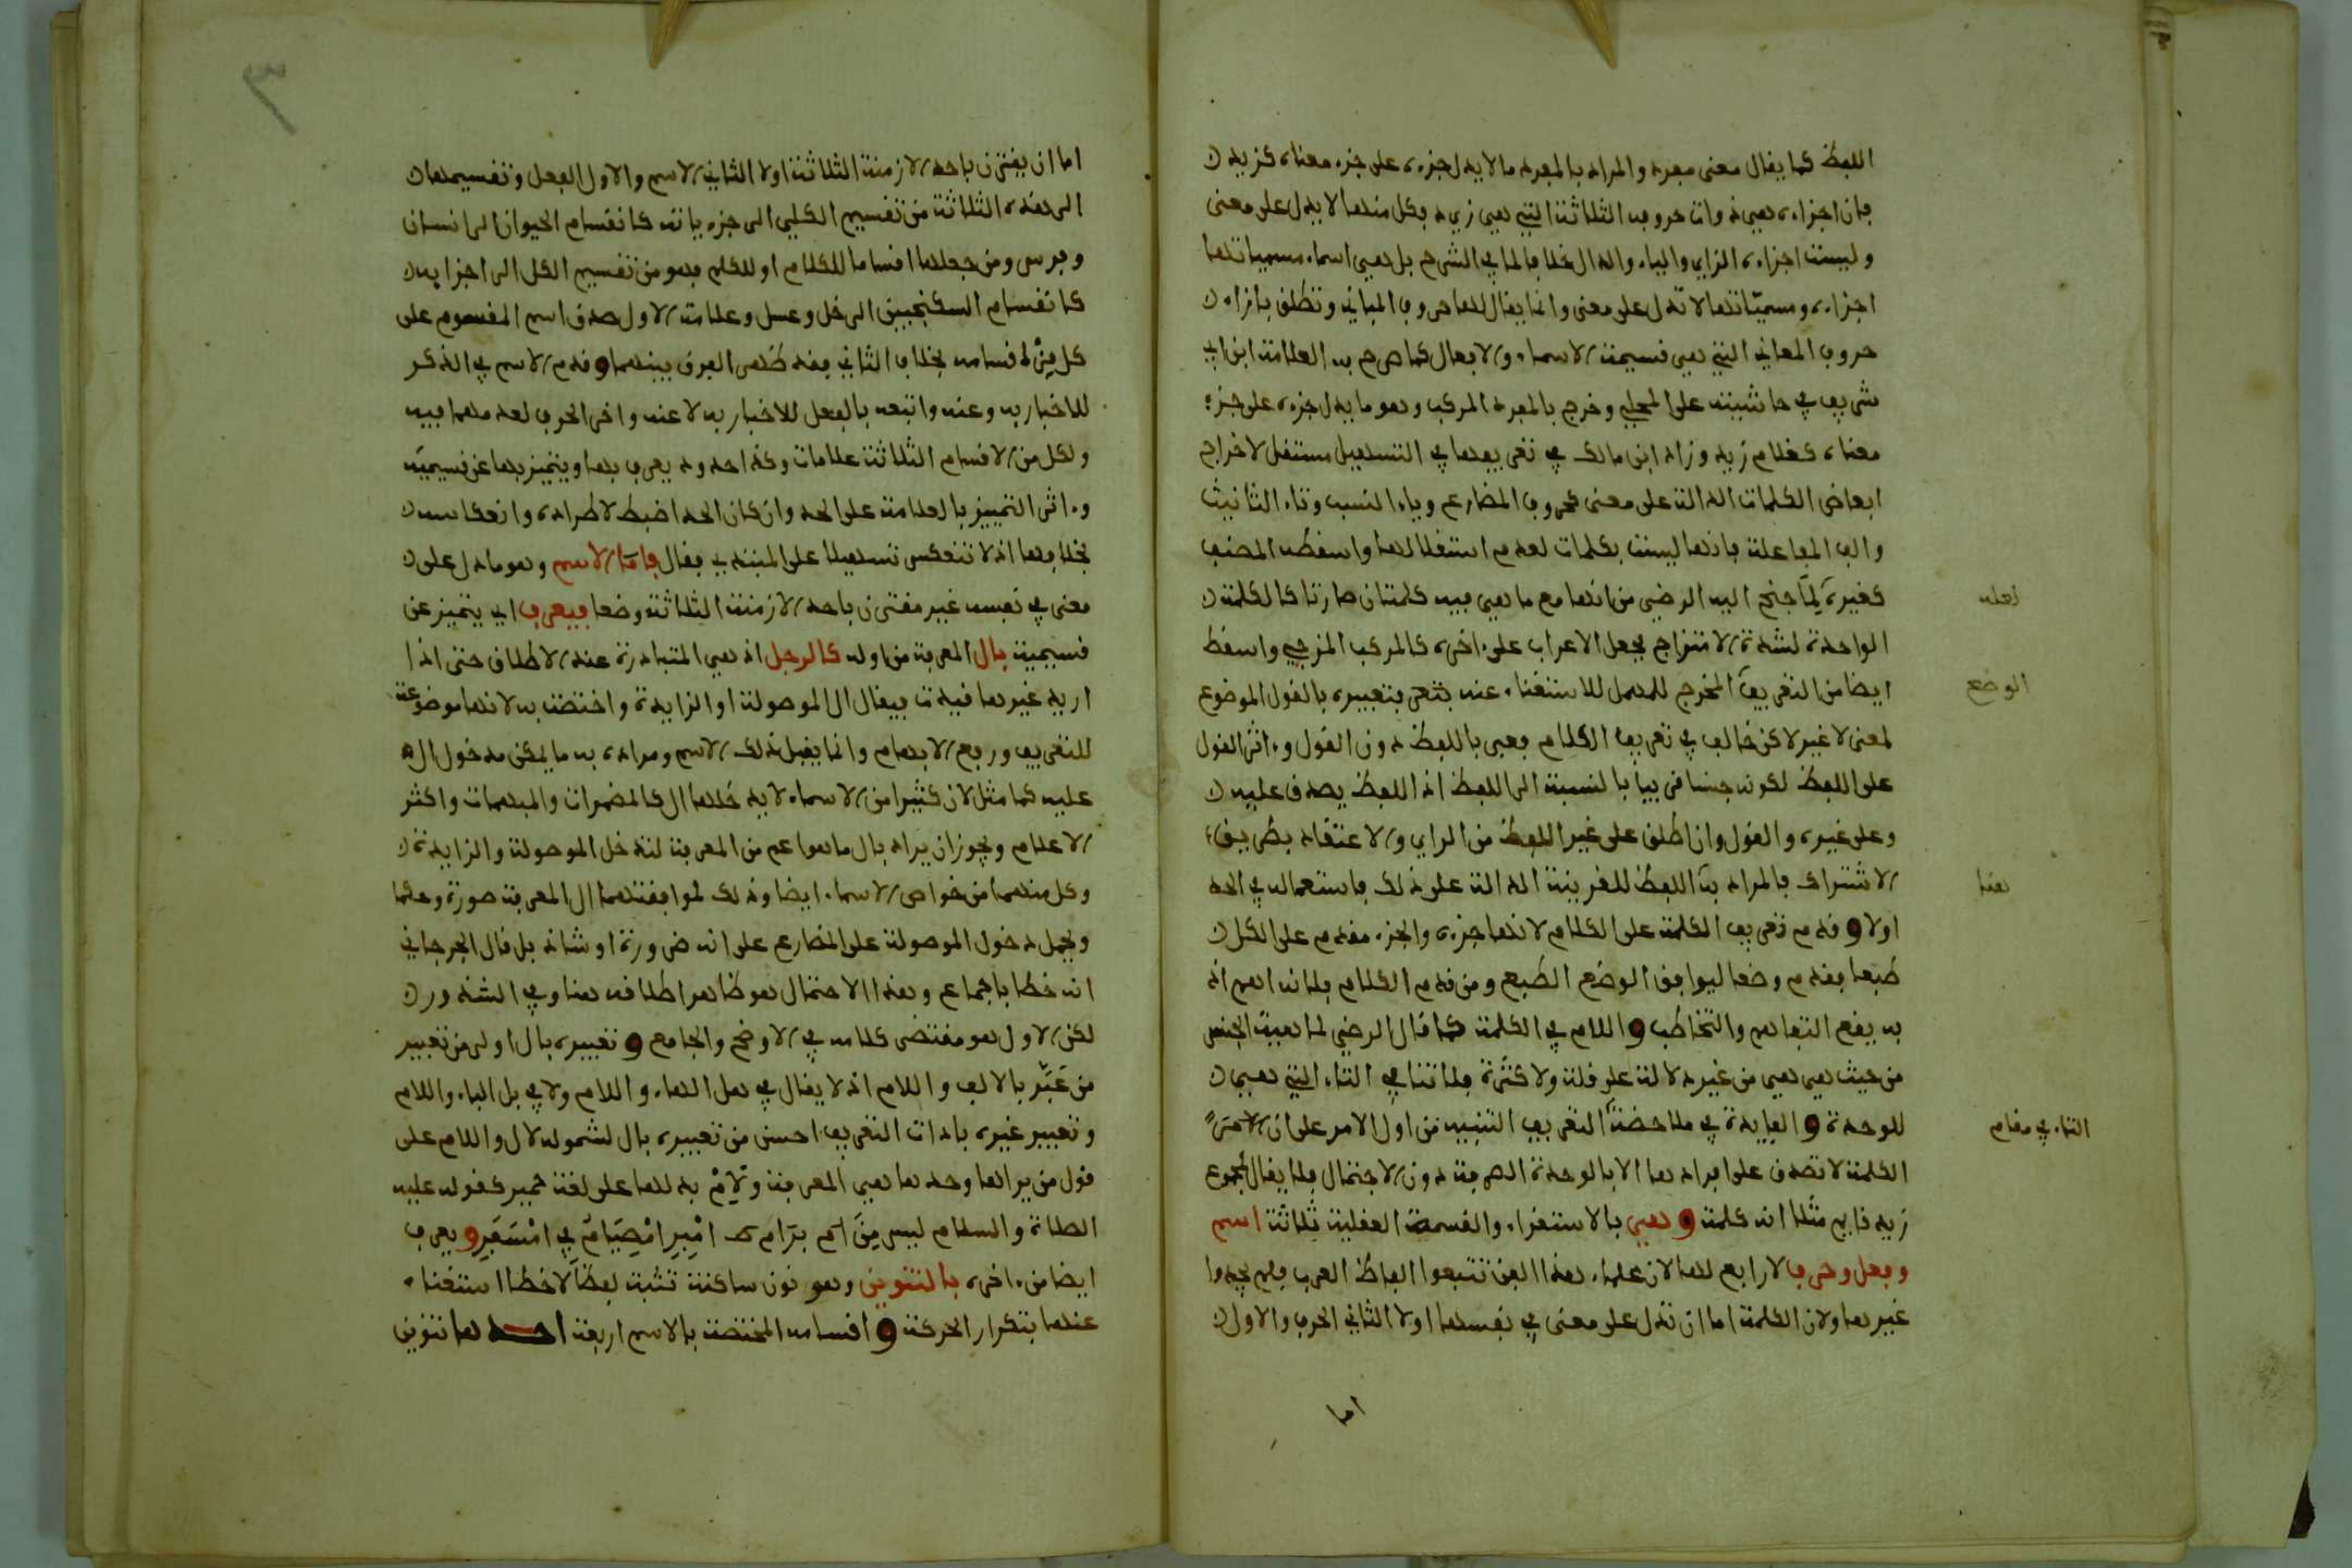 اللفظ كما يقال معنى مفرد والمراد بالمفرد ما لا يدل جزءه على جزء معناه كزيد
فان اجزاءه هي ذوات حروفه الثلاثة التي هي زيد فكل منها لا يدل على معنى
وليست اجزاءه الزاي والياء والدال خلافا لما في الشرح بل هي اسماء مسمياتها
اجزاءه ومسمياتها لا تدل على معنى وانما يقال لها حروف المباني وتطلق بازاء
حروف المعاني التي هي قسيمة الاسماء والافعال كما صرح به العلامة ابن ابي
شريف في حاشيته على المحلي وخرج بالمفرد المركب وهو ما يدل جزءه على جزء
معناه كغلام زيد وزاد ابن مالك في تعريفها في التسهيل مستقل لاخراج
ابعاض الكلمات الدالة على معنى كحروف المضارع وياء النسب وتاء التانيث
والف المفاعلة فانها ليست بكلمات لعدم استقلالها واسقطه المصنف
كغيره لما جنح اليه الرضي من انها مع ما هي فيه كلمتان صارتا كالكلمة
الواحدة لشدة الامتزاج فجعل الاعراب على اخره كالمركب المزجي واسقط
ايضا من التعريف المخرج للمهمل للاستغناء عنه بتعبيره بالقول الموضوع
لمعنى لا غير لاكن خالف في تعريف الكلام فعبر باللفظ دون القول واثر القول
على اللفظ لكونه جنسا قريبا بالنسبة الى اللفظ اذ اللفظ يصدق عليه
وعلى غيره والقول وان اطلق على غير اللفظ من الراي والاعتقاد بطريق
الاشتراك فالمراد به اللفظ للقرينة الدالة على ذلك فاستعماله في الحد
اولا وقدم تعريف الكلمة على الكلام لانها جزءه والجزء مقدم على الكل
طبعا فقدم وضعا ليوافق الوضع الطبع ومن قدم الكلام فلانه اهم اذ
به يقع التفاهم والتخاطب واللام في الكلمة كما قال الرضي لماهية الجنس
من حيث هي هي من غير دلالة على قلة ولا كثرة فلا تنافي التاء التي هي
للوحدة والفايدة في ملاحضة التعريف التنبيه من اول الامر على ان
الكلمة لا تصدق على افرادها الا بالوحدة الصرفة دون الاجتماع فلا يقال لمجموع
زيد قايم مثلا انه كلمة وهي بالاستقراء والقسمة العقلية ثلاثة اسم
وفعل وحرف لا رابع لها لان علماء هذا الفن تتبعوا الفاظ العرب فلم يجدوا
غيرها ولان الكلمة اما ان تدل على معنى في نفسها اولا الثاني الحرف والاول
اما
لعله
الوضع
هنا
التاء في مقام
٣
اما ان يقترن باحد الازمنة الثلاثة اولا الثاني الاسم والاول الفعل وتقسيمها
الى هذه الثلاثة من تقسيم الكلي الى جزءياته كانقسام الحيوان الى انسان
وفرس ومن جعلها اقساما للكلام او للكلم فهو من تقسيم الكل الى اجزايه
كانقسام السكنجبين الى خل وعسل وعلامة الاول صدق اسم المقسوم على
كل من اقسامه بخلاف الثاني فقد ظهر الفرق بينهما وقدم الاسم في الذكر
للاخبار به وعنه واتبعه بالفعل للاخبار به لا عنه واخر الحرف لعدمهما فيه
ولكل من الاقسام الثلاثة علامات وكذا حدود يعرف بها ويتميز بها عن قسيميه
واثر التمييز بالعلامة على الحد وان كان الحد اضبط لاطراده وانعكاسه
بخلافها اذ لا تنعكس تسهيلا على المبتدي فقال فاما الاسم وهو ما دل على
معنى في نفسه غير مقترن باحد الازمنة الثلاثة وضعا فيعرف اي يتميز عن
قسيميه بال المعرفة من اوله كالرجل اذ هي المتبادرة عند الاطلاق حتى اذا
اريد غيرها قيدت فيقال ال الموصولة او الزايدة واختصت به لانها موضوعة
للتعريف ورفع الابهام وانما يقبل ذلك الاسم ومراده به ما يمكن مدخول ال
عليه كما مثل لان كثيرا من الاسماء لا يدخلها ال كالمضمرات والمبهمات واكثر
الاعلام ويجوز ان يراد بال ما هو اعم من المعرفة لتدخل الموصولة والزايدة
وكل منهما من خواص الاسماء ايضا وذلك لموافقتهما ال المعرفة صورة وحكما
ويحمل دخول الموصولة على المضارع على انه ضرورة او شاذ بل قال الجرجاني
انه خطا باجماع وهذا الاحتمال هو ظاهر اطلاقه هنا وفي الشذور
لكن الاول هو مقتضى كلامه في الاوضح والجامع وتعبيره بال اولى من تعبير
من عبر بالالف واللام اذ لا يقال في هل الهاء واللام ولا في بل الباء واللام
وتعبير غيره باداة التعريف احسن من تعبيره بال لشموله لال واللام على
قول من يراها وحدها هي المعرفة ولام بدلها على لغة حمير كقوله عليه
الصلاة والسلام ليس من امبر امصيام في امسفر ويعرف
ايضا من اخره بالتنوين وهو نون ساكنة تثبت لفظا لا خطا استغناء
عنها بتكرار الحركة واقسامه المختصة بالاسم اربعة احدها تنوين